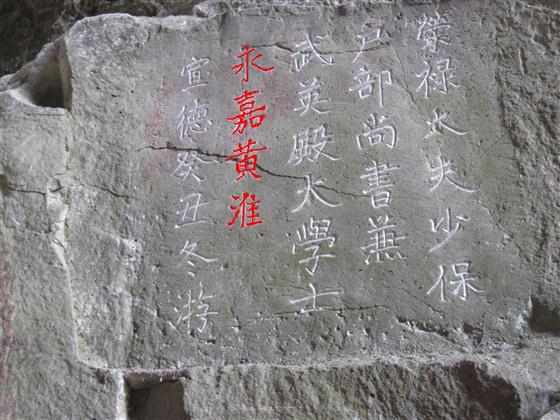 荣禄大夫少保
户部尚書兼
武英殿大學士
永嘉黃淮
宣德癸丑冬游